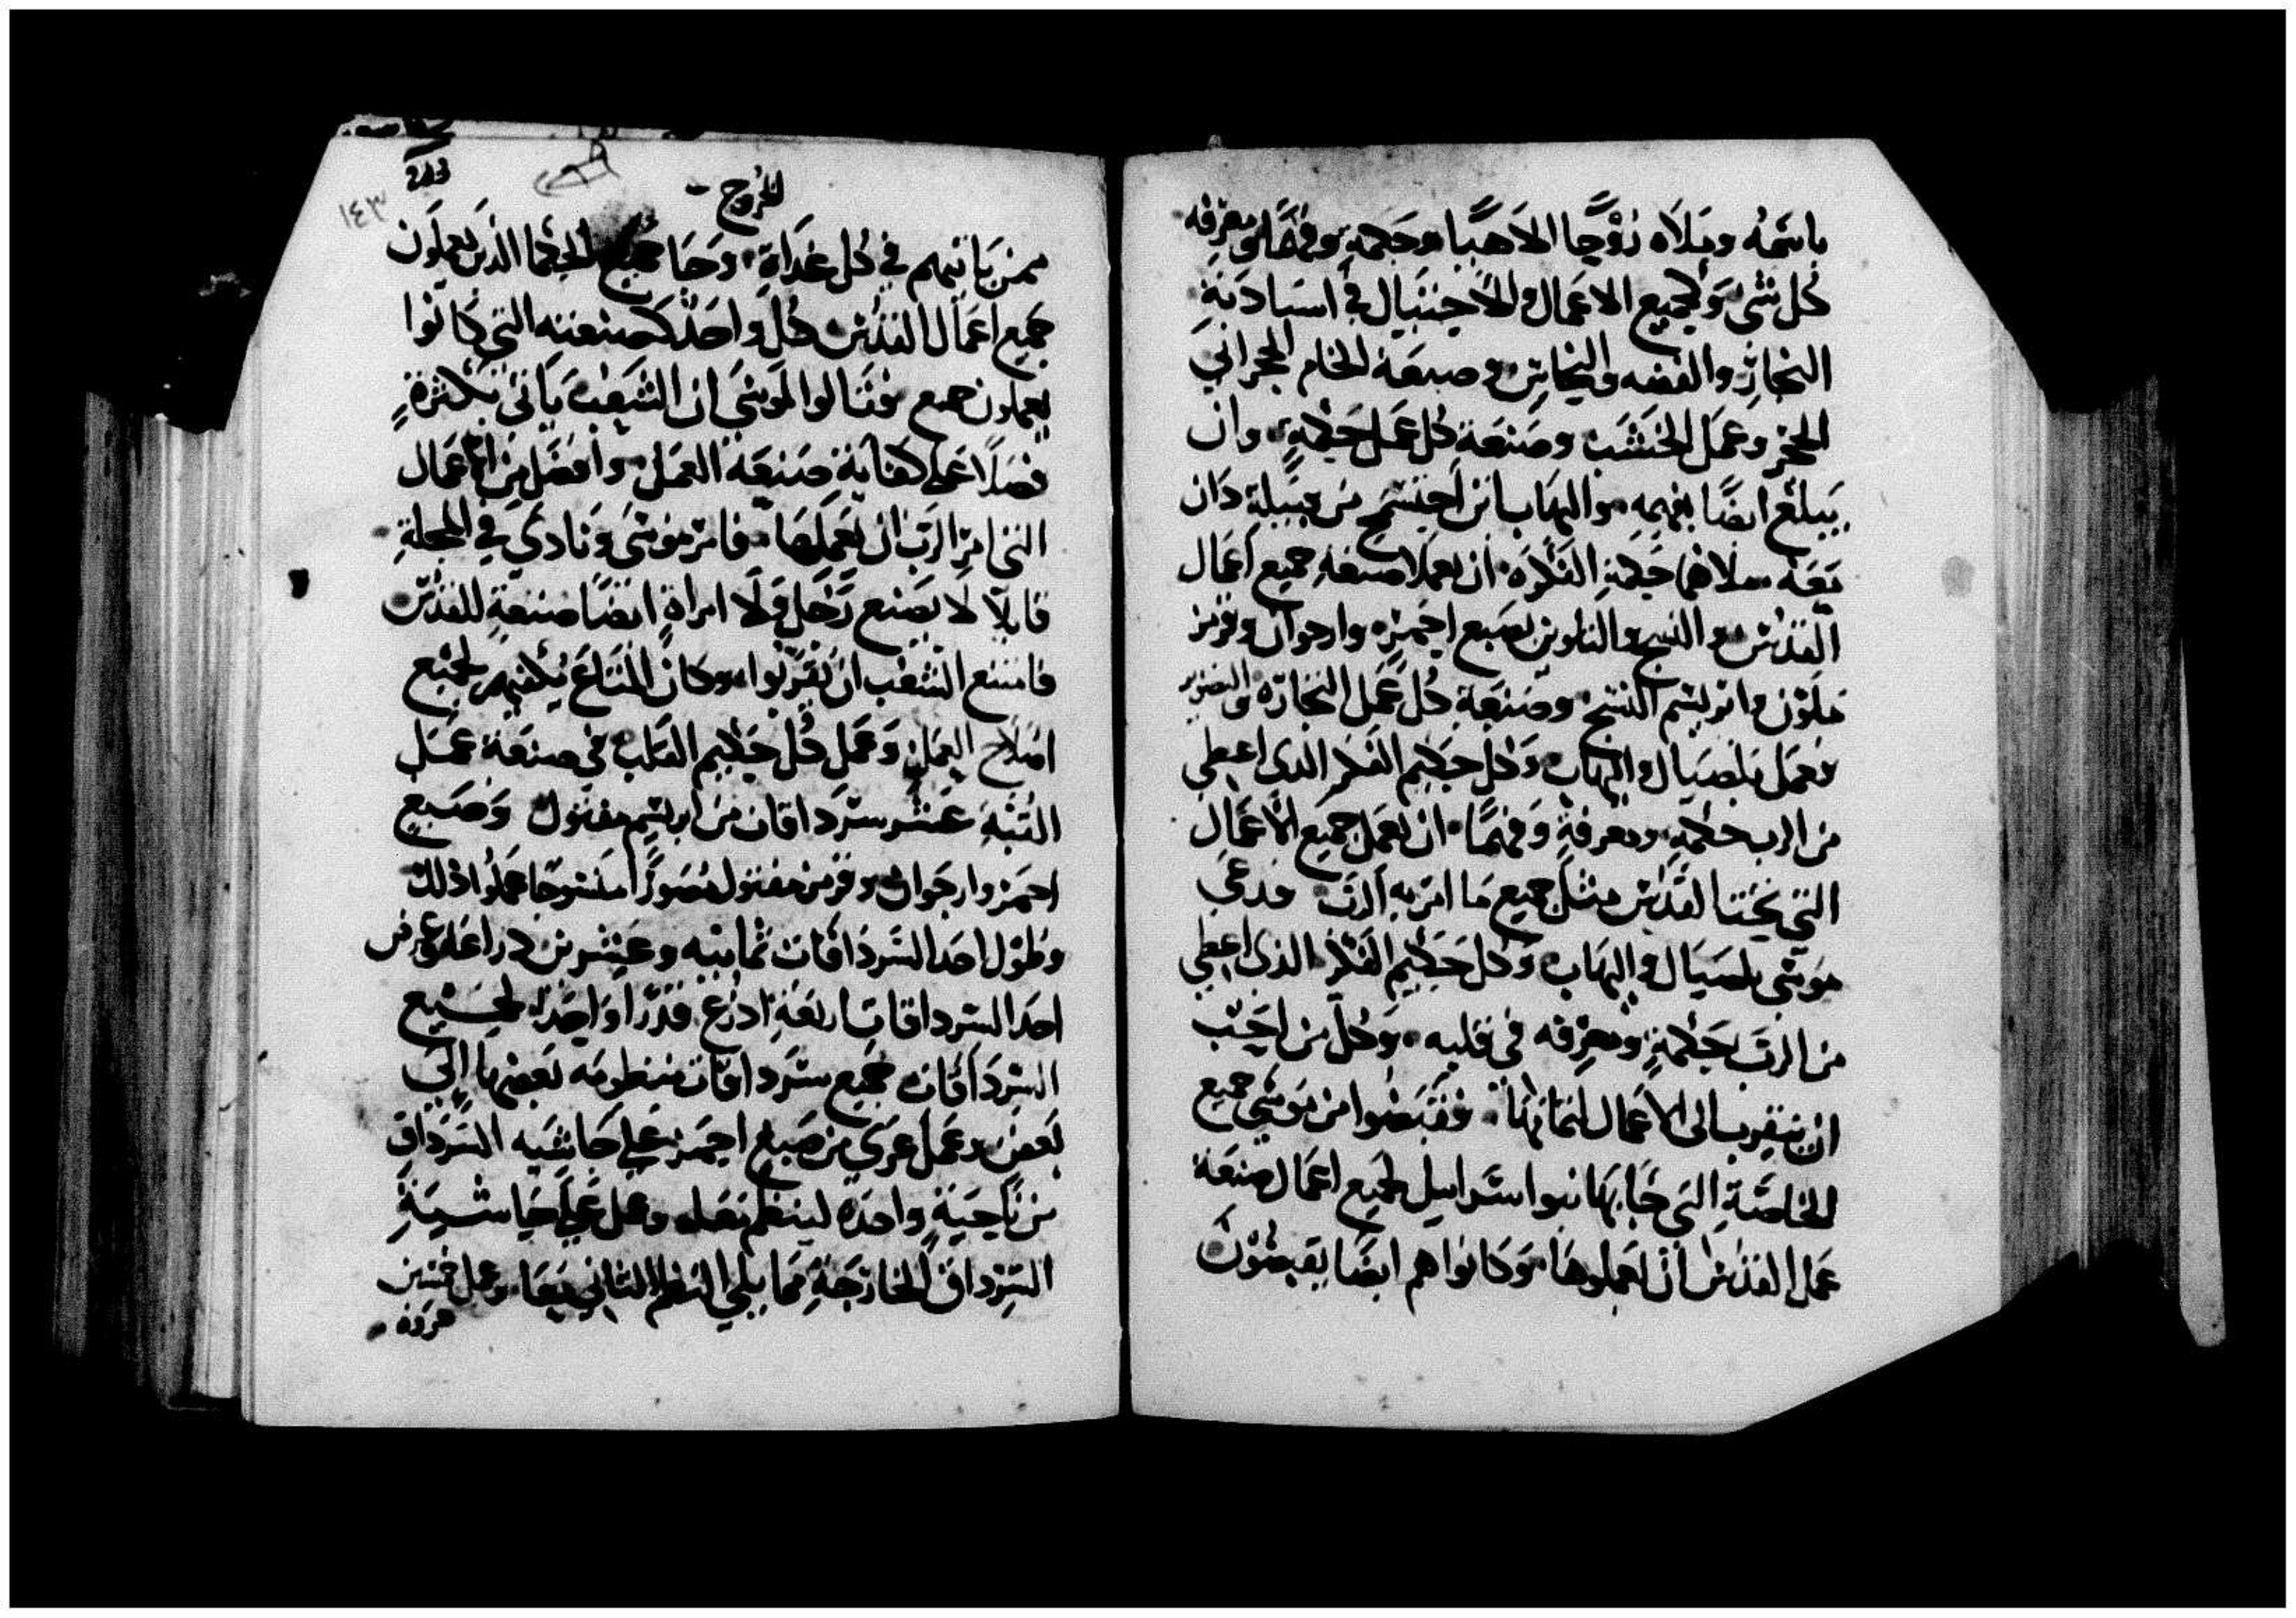 باسمه وملاه روحا الاهيا وحكمه وفهما ومعرفه
كل شى ولجميع الاعمال والاحتيال في استادية
النحاز والفضه والنحاس وصبغة الخام الحجراني
الحجر وعمل الخشب وصنعة كل عمل حكمة وان
يبلغ ايضا بفهمه واليهاب ابن احيسمح من قبيلة دان
معه ملاهما حكمة الفكره ان يعملا صنعه جميع اعمال
القدس والنسج والتلوين بصبع احمر وارجوان وقرمز
ملون وابريسم النسج وصنعة كل عمل النجاره والتصوير
وعمل بلصيال واليهاب وكل حكيم الفكر الذى اعطى
من الرب حكمة ومعرفة وفهما ان يعمل جميع الاعمال
التي تحتا القدس مثل جميع ما امر به الرب فدعى
موسى بلصيال واليهاب وكل حكيم الفكر الذى اعطى
من الرب بحكمة ومعرفه في قلبه وكل من احب
ان يتقرب الى الاعمال لتمامها فقبضوا من موسى جميع
الخاصة التي جا بها بنوا اسراييل لجميع اعمال صنعة
عمل القدس ان يعملوها وكانوا هم ايضا يقبضون
الخروج
١٤٣
ممن ياتيهم في كل غداة وجا جميع الحكما الذين يعملون
جميع اعمال القدس كل واحد كصنعته التي كانوا
يعملون جميع فقالوا لموسى ان الشعب ياتى بكثرة
فضلا على كفاية صنعة العمل وافضل من الاعمال
التي امر الرب ان نعملها فامر موسى ونادى في المحلة
قايلا لا يصنع رجل ولا امراة ايضا صنعة للقدس
فامتنع الشعب ان يقربوا وكان المتاع يكفيهم لجميع
اصلاح العمل وعمل كل حكيم القلب في صنعة عمل
القبة عشر سرداقات من ابريسم مفتول وصبع
احمر وارجوان وقرمز مفتول مصورا منسوجا عملوا ذلك
وطول احد السرداقات ثمانيه وعشرين دراعا وعرض
احد السرداقات اربعة ادرع قدرا واحدا لجميع
السرداقات جميع سرداقات منظومه بعضها الى
بعض وعمل عرى من صبع احمر على حاشيه السرداق
من ناحية واحده لينظم بقبله وعمل على حاشية
السرداق الخارجة مما يلي النظم الثاني معا وعمل خمسين
عروة